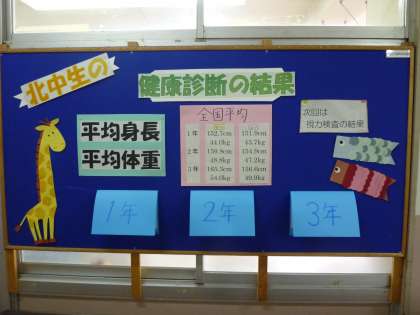 北中生の
健康診断の結果
平均身長
平均体重
全国平均
1年 152.5cm 151.9cm
44.0kg 43.7kg
2年 159.8cm 154.9cm
48.8kg 47.2kg
3年 165.3cm 156.6cm
54.0kg 49.9kg
次回は
視力検査の結果
1年
2年
3年